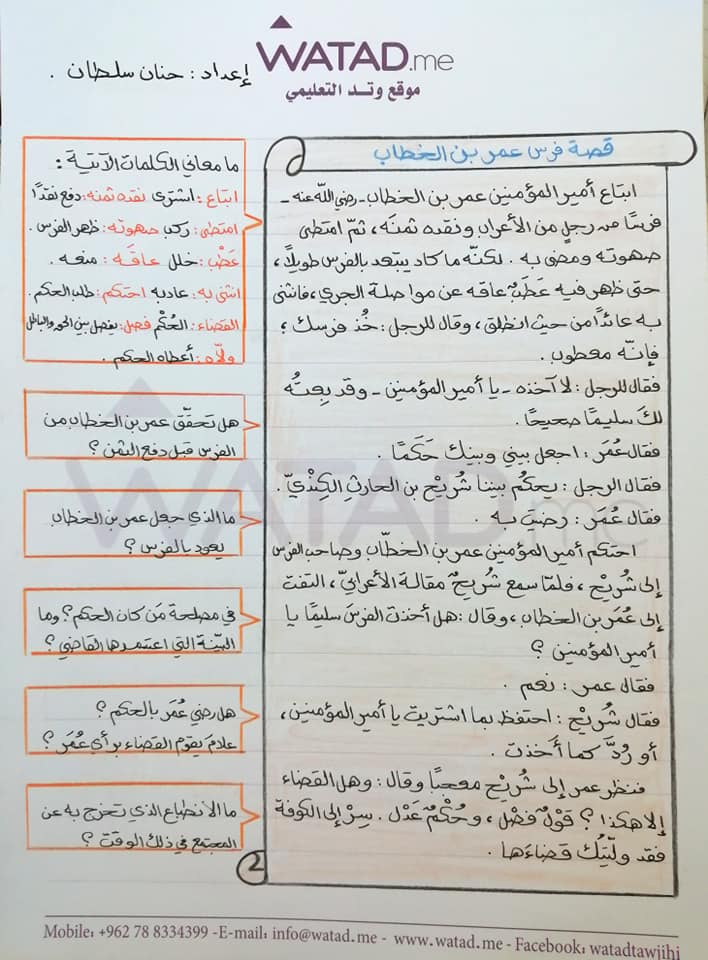 WATAD.me
موقع وتد التعليمي
إعداد : حنان سلطان .
قصة فرس عمر بن الخطاب
ابتاع أمير المؤمنين عمر بن الخطاب - رضي الله عنه -
فرسًا من رجلٍ من الأعراب ونقده ثمنَه ، ثمّ امتطى
صهوته ومضى به . لكنّه ما كاد يبتعد بالفرس طويلًا ،
حتى ظهر فيه عَطَبٌ عاقه عن مواصلة الجري ، فانثنى
به عائدًا من حيث انطلق ، وقال للرجل : خُذ فرسك ؛
فإنّه معطوب .
فقال الرجل : لا آخذه - يا أمير المؤمنين - وقد بِعتُه
لكَ سليمًا صحيحًا .
فقال عُمَر : اجعل بيني وبينك حَكَمًا .
فقال الرجل : يحكُم بيننا شُريْح بن الحارثِ الكِنْديّ .
فقال عُمَر : رضيت به .
احتكم أمير المؤمنين عمر بن الخطّاب وصاحب الفرس
إلى شُريْح ، فلمّا سمع شُريحٌ مقالة الأعرابيّ ، التفت
إلى عُمَر بن الخطاب ، وقال : هل أخذت الفرسَ سليمًا يا
أمير المؤمنين ؟
فقال عمر : نعم .
فقال شُريْح : احتفظ بما اشتريت يا أمير المؤمنين ،
أو رُدَّ كما أخذت .
فنظر عمر إلى شُريْح معجبًا وقال : وهل القضاء
إلا هكذا ؟ قَوْلٌ فَصْل ، وحُكْمٌ عَدْل . سِرْ إلى الكوفة
فقد ولّيتُك قضاءَها .
2
ما معاني الكلمات الآتية :
ابتاع : اشترى نقده ثمنه : دفع نقدًا
امتطى : ركب صهوته : ظهر الفرس .
عَطَب : خلل عاقَه : منعه .
انثنى به : عاد به احتكم : طلب الحكم .
القضاء : الحُكْم فصل : يفصل بين الحق والباطل
ولّاه : أعطاه الحكم .
هل تحقّق عمر بن الخطاب من
الفرس قبل دفع الثمن ؟
ما الذي جعل عمر بن الخطاب
يعود بالفرس ؟
في مصلحة مَن كان الحكم ؟ وما
البيّنة التي اعتمدها القاضي ؟
هل رضي عُمَر بالحكم ؟
علامَ يقوم القضاء برأي عُمَر ؟
ما الانطباع الذي تخرج به عن
المجتمع في ذلك الوقت ؟
WATAD.me
Mobile: +962 78 8334399 -E-mail: info@watad.me - www.watad.me - Facebook: watadtawjihi